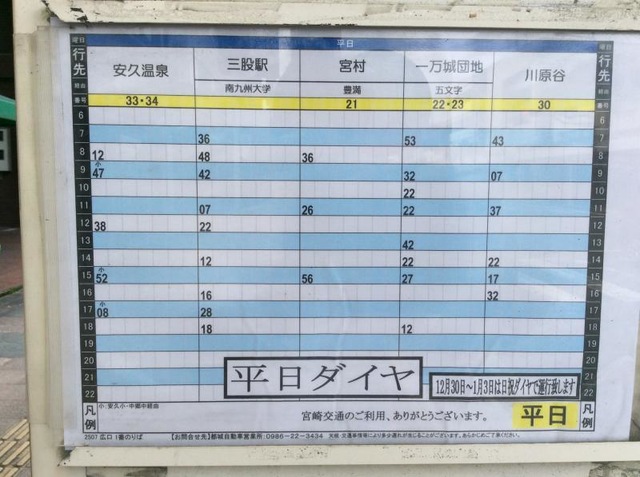 曜日 平日 曜日
行先 安久温泉 三股駅 宮村 一万城団地 川原谷 行先
経由 南九州大学 豊満 五文字 経由
番号 33・34 21 22・23 30 番号
6 6
7 36 53 43 7
8 12 48 36 8
9 小47 42 32 07 9
10 22 10
11 07 26 22 37 11
12 38 22 12
13 42 13
14 12 22 22 14
15 小52 56 27 17 15
16 16 32 16
17 小08 28 17
18 18 12 18
19 19
20 20
21 平日ダイヤ 21
22 12月30日～1月3日は日祝ダイヤで運行致します 22
凡例 小:安久小・中郷中経由 凡例
宮崎交通のご利用、ありがとうございます。 平日
2507 広口 1番のりば 【お問合せ先】都城自動車営業所:0986-22-3434 天候・交通事情等により多少遅れが生じることがございます。あらかじめご了承ください。